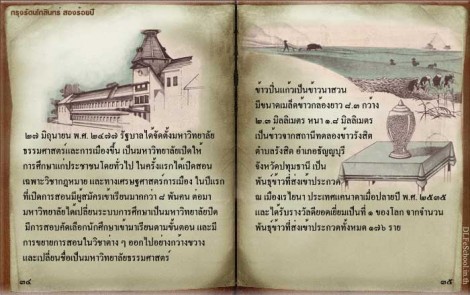 กรุงรัตนโกสินทร์ สองร้อยปี
๒๗ มิถุนายน พ.ศ. ๒๔๗๗ รัฐบาลได้จัดตั้งมหาวิทยาลัย
ธรรมศาสตร์และการเมืองขึ้น เป็นมหาวิทยาลัยเปิดให้
การศึกษาแก่ประชาชนโดยทั่วไป ในครั้งแรกได้เปิดสอน
เฉพาะวิชากฎหมาย และทางเศรษฐศาสตร์การเมือง ในปีแรก
ที่เปิดการสอนมีผู้สมัครเข้าเรียนมากกว่า ๘ พันคน ต่อมา
มหาวิทยาลัยได้เปลี่ยนระบบการศึกษาเป็นมหาวิทยาลัยปิด
มีการสอบคัดเลือกนักศึกษาเข้ามาเรียนตามขั้นตอน และมี
การขยายการสอนในวิชาต่าง ๆ ออกไปอย่างกว้างขวาง
และเปลี่ยนชื่อเป็นมหาวิทยาลัยธรรมศาสตร์
๓๔
ข้าวปิ่นแก้วเป็นข้าวนาสวน
มีขนาดเมล็ดข้าวกล้องยาว ๘.๓ กว้าง
๒.๓ มิลลิเมตร หนา ๑.๘ มิลลิเมตร
เป็นข้าวจากสถานีทดลองข้าวรังสิต
ตำบลรังสิต อำเภอธัญญบุรี
จังหวัดปทุมธานี เป็น
พันธุ์ข้าวที่ส่งเข้าประกวด
ณ เมืองเรไยนา ประเทศแคนาดาเมื่อปลายปี พ.ศ. ๒๕๓๕
และได้รับรางวัลดียอดเยี่ยมเป็นที่ ๑ ของโลก จากจำนวน
พันธุ์ข้าวที่ส่งเข้าประกวดทั้งหมด ๑๗๖ ราย
๓๕